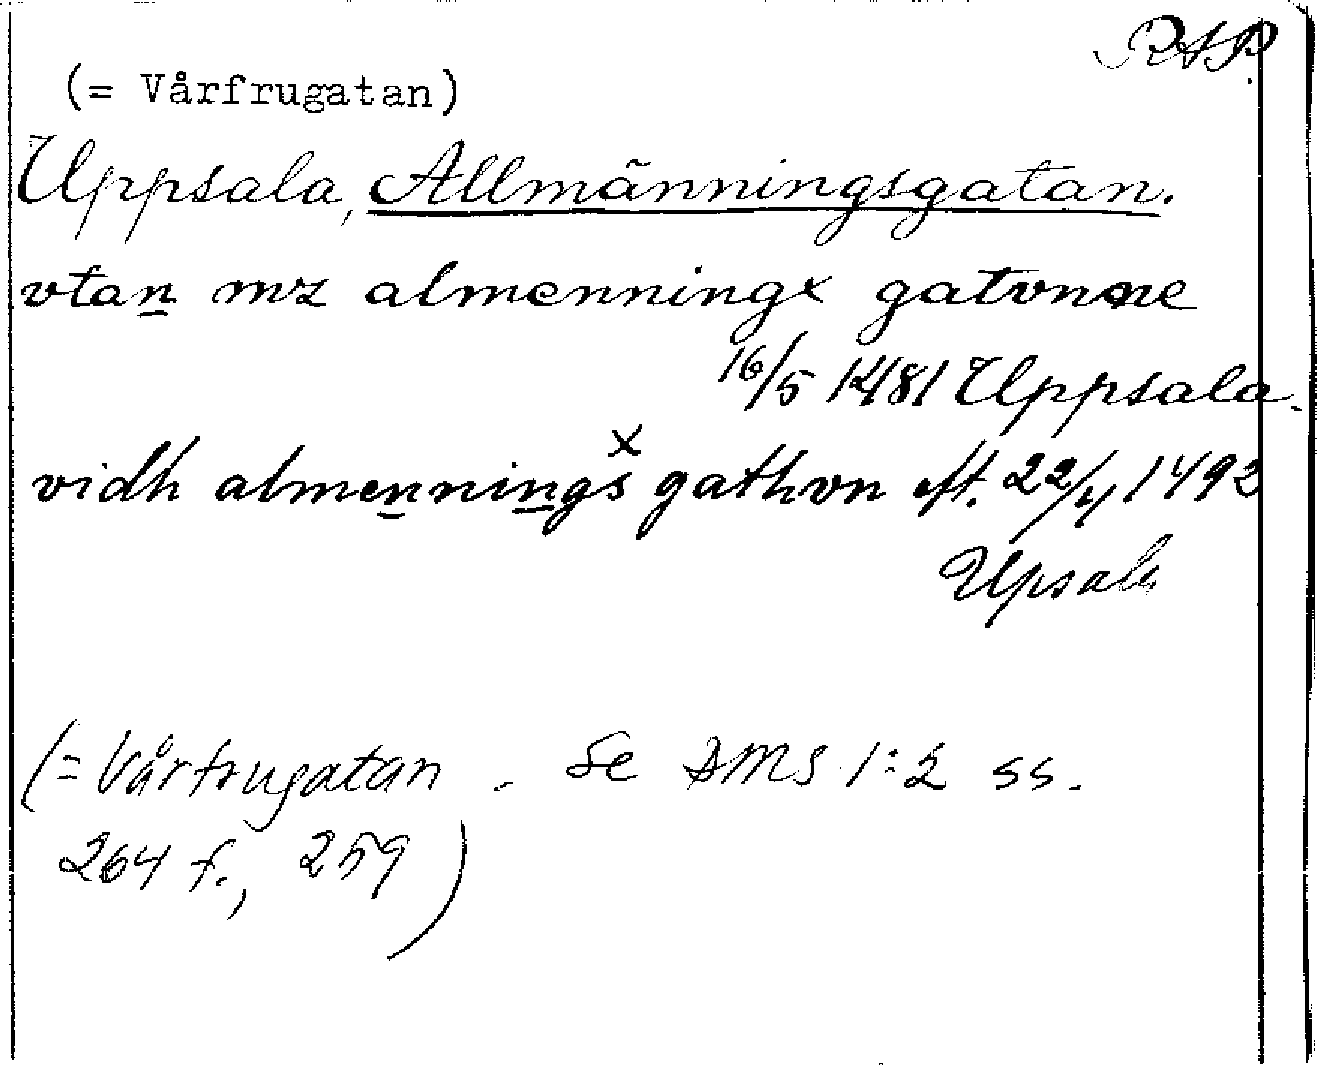 RAP.
(= Vårfrugatan)
Uppsala, Allmänningsgatan.
vtan mz almenningx gatvnne
16/5 1481 Uppsala.
vidh almennings x gathvn eft. 22/4 1492
Upsala
(= Vårfrugatan. Se DMS 1:2 ss.
264 f., 259)